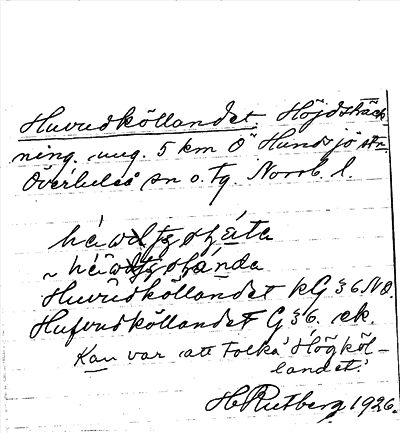 Huvudköllandet. Höjdsträck-
ning. ung. 5 km Ö Hundsjö stn.
Överluleå sn o. tg. Norrb. l.
Huvudköllandet kG 36.NO.
Hufvudköllandet G 36. ek.
Kan var att tolka 'Högköl-
landet.'
H Rutberg 1926.